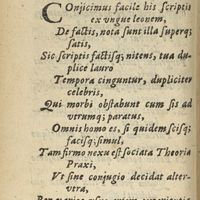 COnijcimus facile his scriptis
ex vngue leonem,
De factis, nota sunt illa superq;
satis,
Sic scriptis factisq; nitens, tua du-
plice lauro
Tempora cinguntur, dupliciter
celebris,
Qui morbi obstabunt cum sis ad
vtrumq; paratus,
Omnis homo es, si quidem scisq;
facisq; simul,
Tam firmo nexu est sociata Theoria
Praxi,
Vt sine coniugio decidat alter-
vtra,